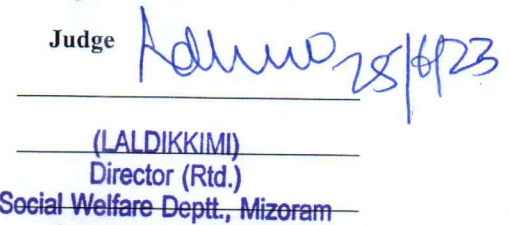 Judge 28/6/23
(LALDIKKIMI)
Director (Rtd.)
Social Welfare Deptt., Mizoram